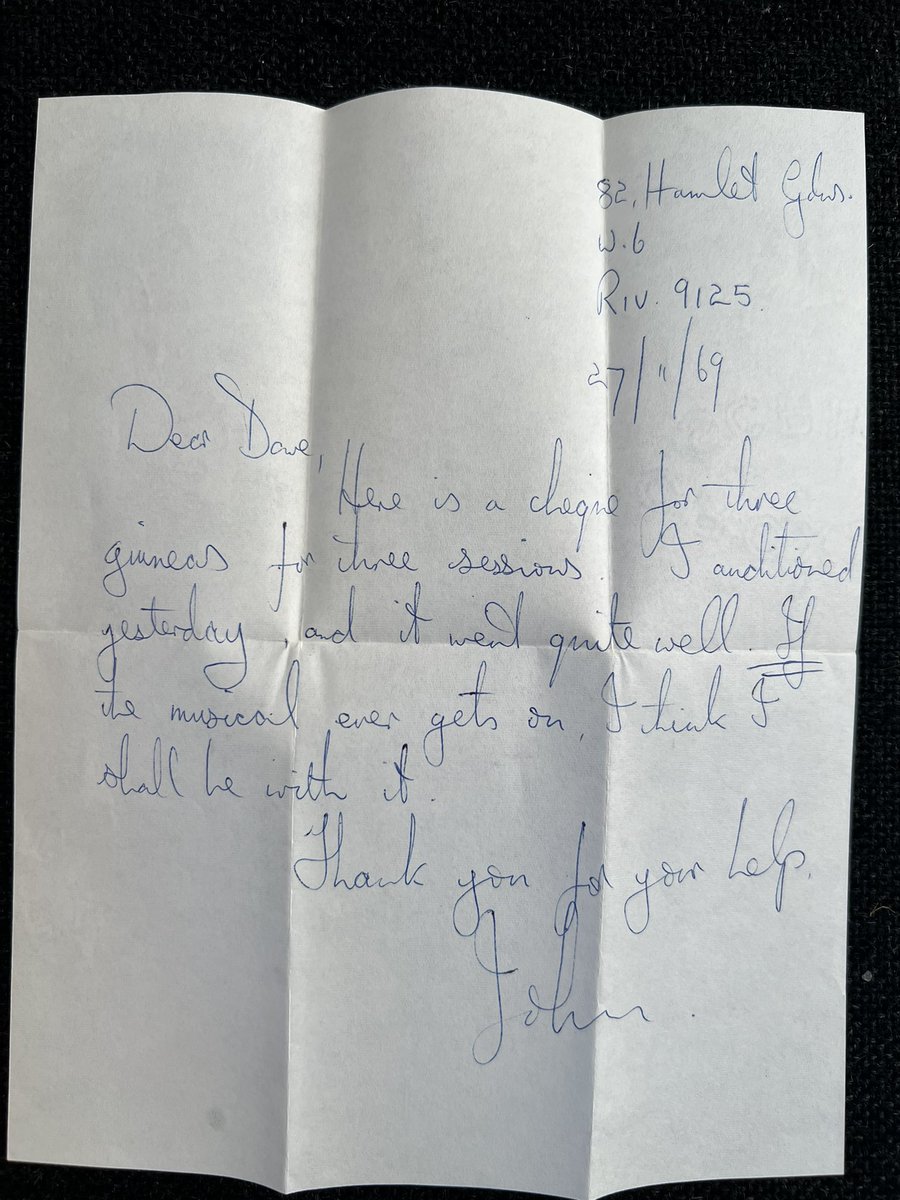 82, Hamlet Gdns.
W.6
RIV. 9125.
27/11/69
Dear Dave,
Here is a cheque for three
guineas for three sessions. I auditioned
yesterday, and it went quite well. If
the musical ever gets on, I think I
shall be with it.
Thank you for your help.
John.